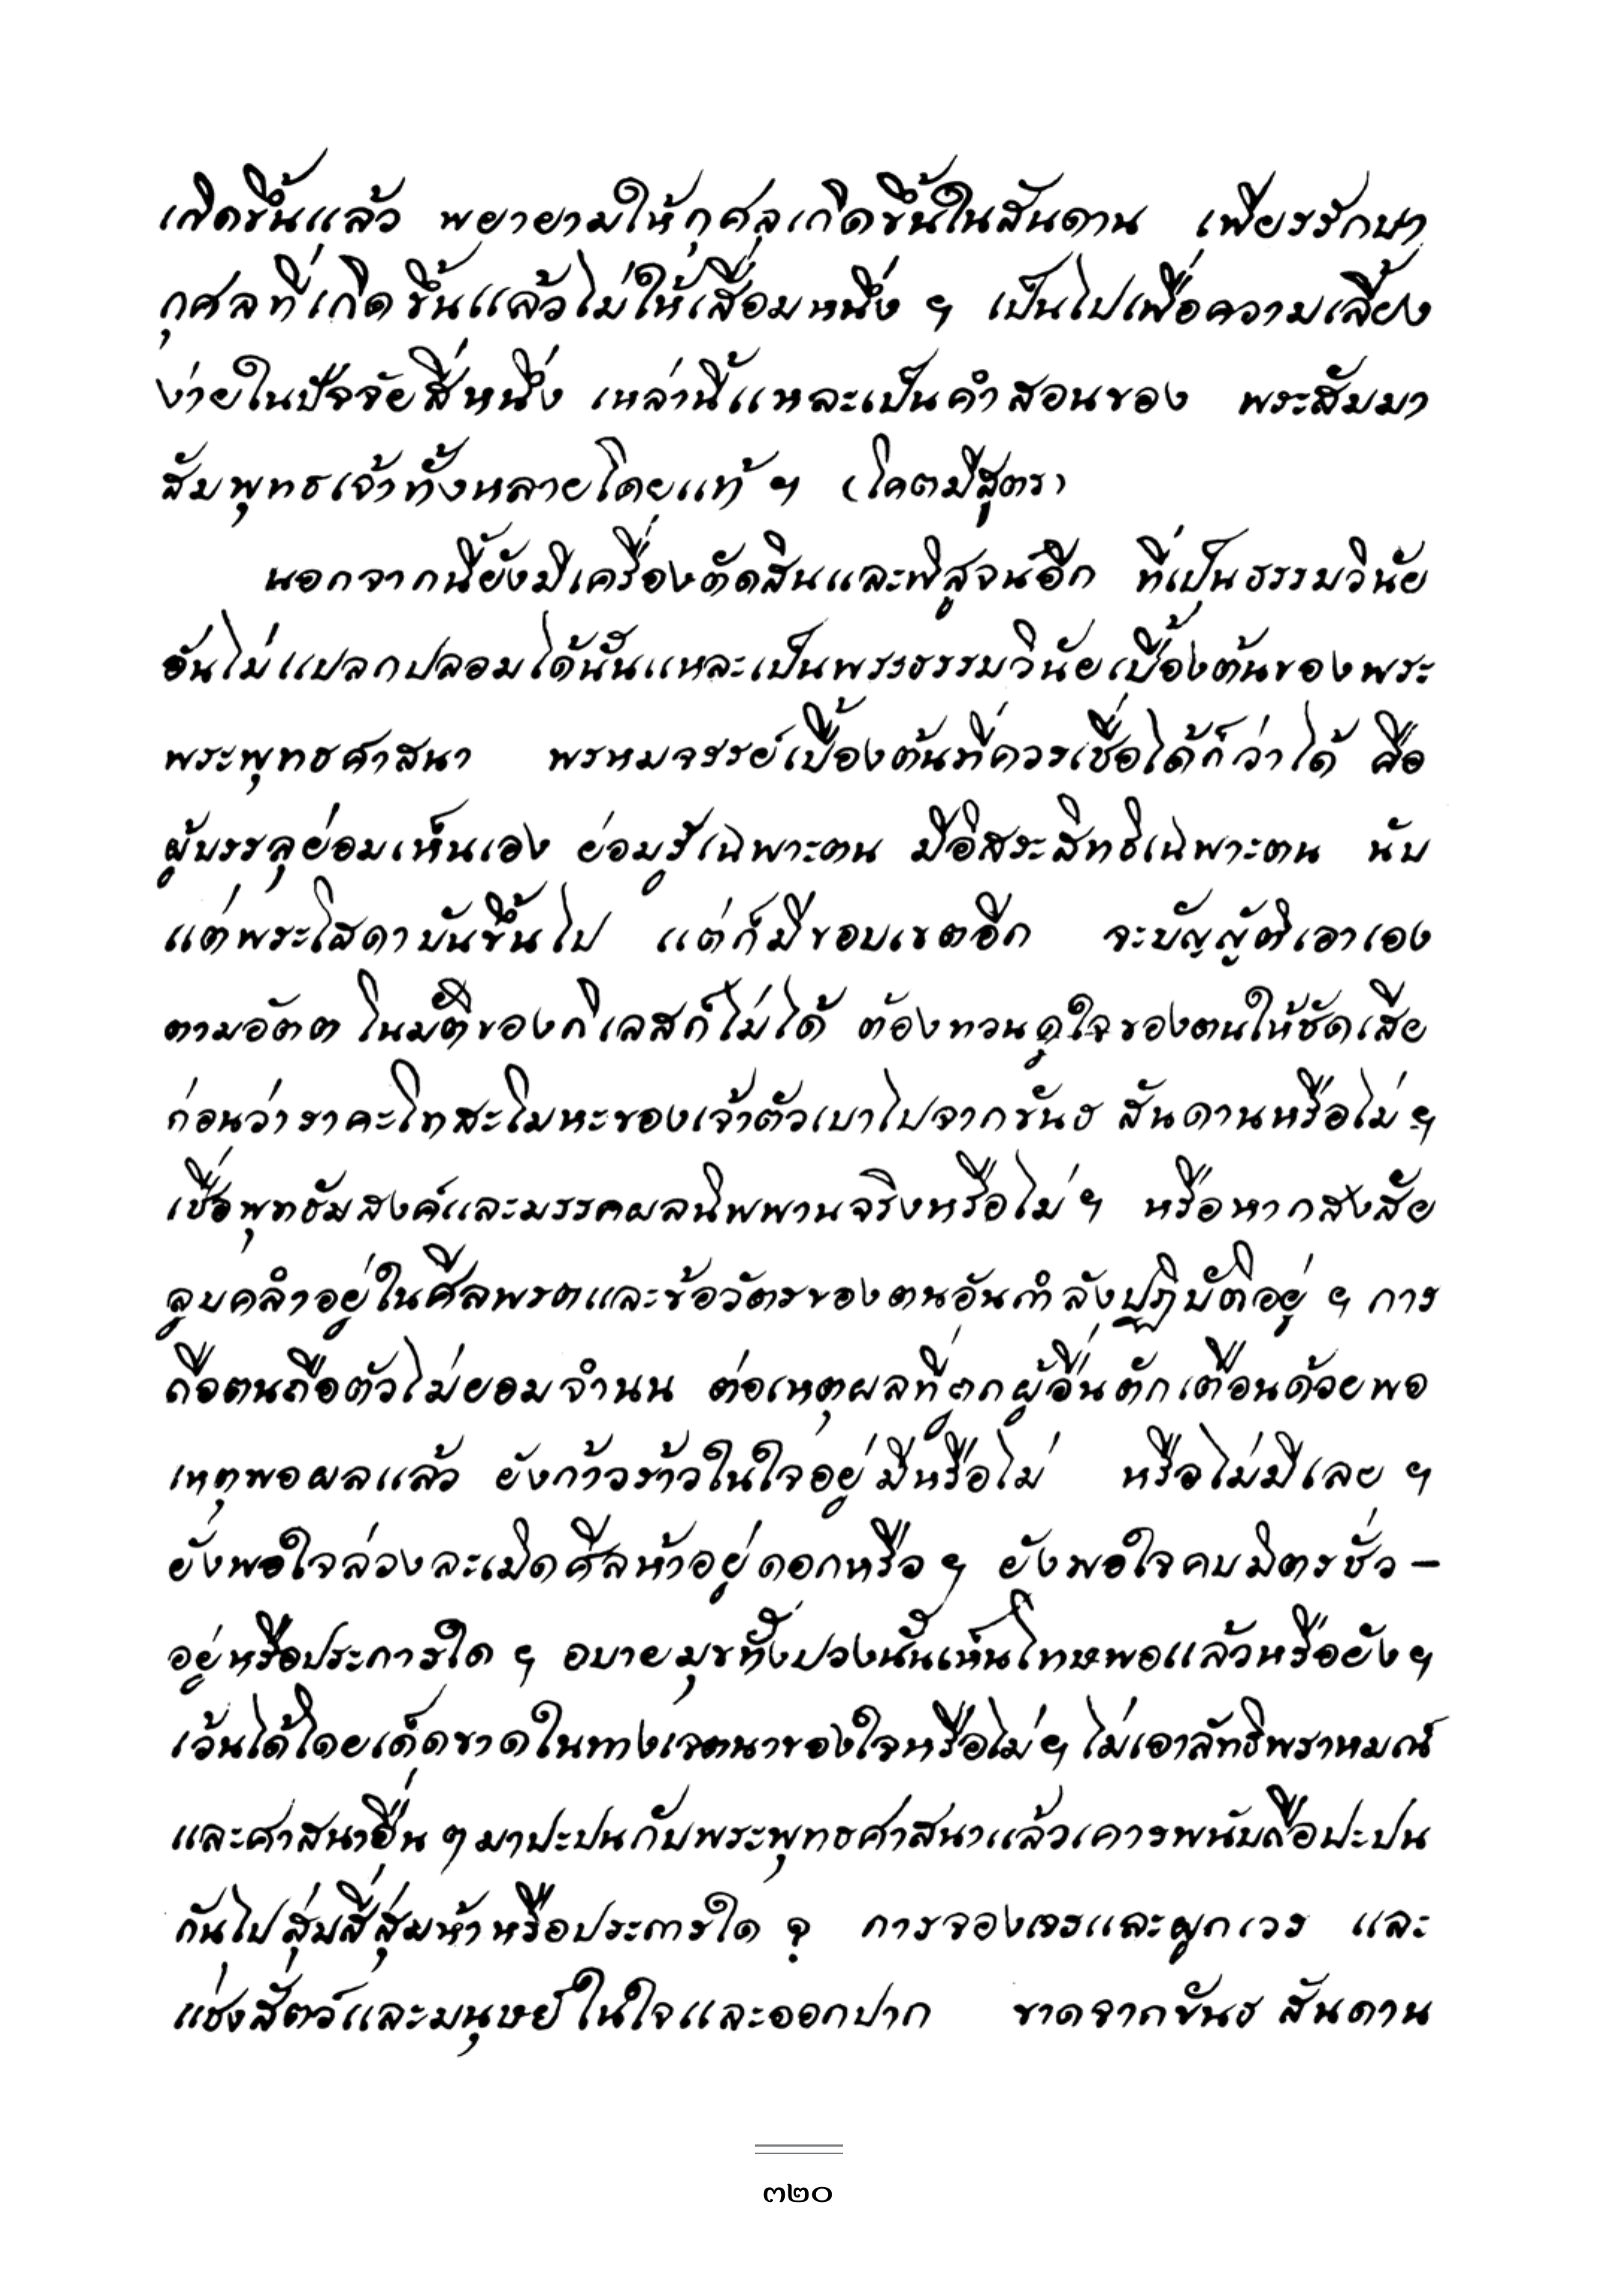 เกิดขึ้นแล้ว พยายามให้กุศลเกิดขึ้นในสันดาน เพียรรักษา
กุศลที่เกิดขึ้นแล้วไม่ให้เสื่อมหนึ่ง ฯ เป็นไปเพื่อความเลี้ยง
ง่ายในปัจจัยสี่หนึ่ง เหล่านี้แหละเป็นคำสอนของ พระสัมมา
สัมพุทธเจ้าทั้งหลายโดยแท้ ฯ (โคตมีสูตร)
นอกจากนี้ยังมีเครื่องตัดสินและพิสูจน์อีก ที่เป็นธรรมวินัย
อันไม่แปลกปลอมได้นั้นแหละเป็นพระธรรมวินัยเบื้องต้นของพระ
พระพุทธศาสนา พรหมจรรย์เบื้องต้นที่ควรเชื่อได้ก็ว่าได้ คือ
ผู้บรรลุย่อมเห็นเอง ย่อมรู้เฉพาะตน มีอิสระสิทธิเฉพาะตน นับ
แต่พระโสดาบันขึ้นไป แต่ก็มีขอบเขตอีก จะบัญญัติเอาเอง
ตามอัตตโนมัติของกิเลสก็ไม่ได้ ต้องทวนดูใจของตนให้ชัดเสีย
ก่อนว่าราคะโทสะโมหะของเจ้าตัวเบาไปจากขันธ สันดานหรือไม่ ฯ
เชื่อพุทธัมสงค์และมรรคผลนิพพานจริงหรือไม่ ฯ หรือหากสงสัย
ลูบคลำอยู่ในศีลพรตและข้อวัตรของตนอันกำลังปฏิบัติอยู่ ฯ การ
ถือตนถือตัวไม่ยอมจำนน ต่อเหตุผลที่ถูกผู้อื่นตักเตือนด้วยพอ
เหตุพอผลแล้ว ยังก้าวร้าวในใจอยู่มีหรือไม่ หรือไม่มีเลย ฯ
ยังพอใจล่วงละเมิดศีลห้าอยู่ดอกหรือ ฯ ยังพอใจคบมิตรชั่ว –
อยู่หรือประการใด ฯ อบายมุขทั้งปวงนั้นเห็นโทษพอแล้วหรือยัง ฯ
เว้นได้โดยเด็ดขาดในทางเจตนาของใจหรือไม่ ฯ ไม่เอาลัทธิพราหมณ์
และศาสนาอื่น ๆ มาปะปนกับพระพุทธศาสนาแล้วเคารพนับถือปะปน
กันไปสุ่มสี่สุ่มห้าหรือประการใด ? การจองเวรและผูกเวร และ
แช่งสัตว์และมนุษย์ในใจและออกปาก ขาดจากขันธ สันดาน
๓๒๐